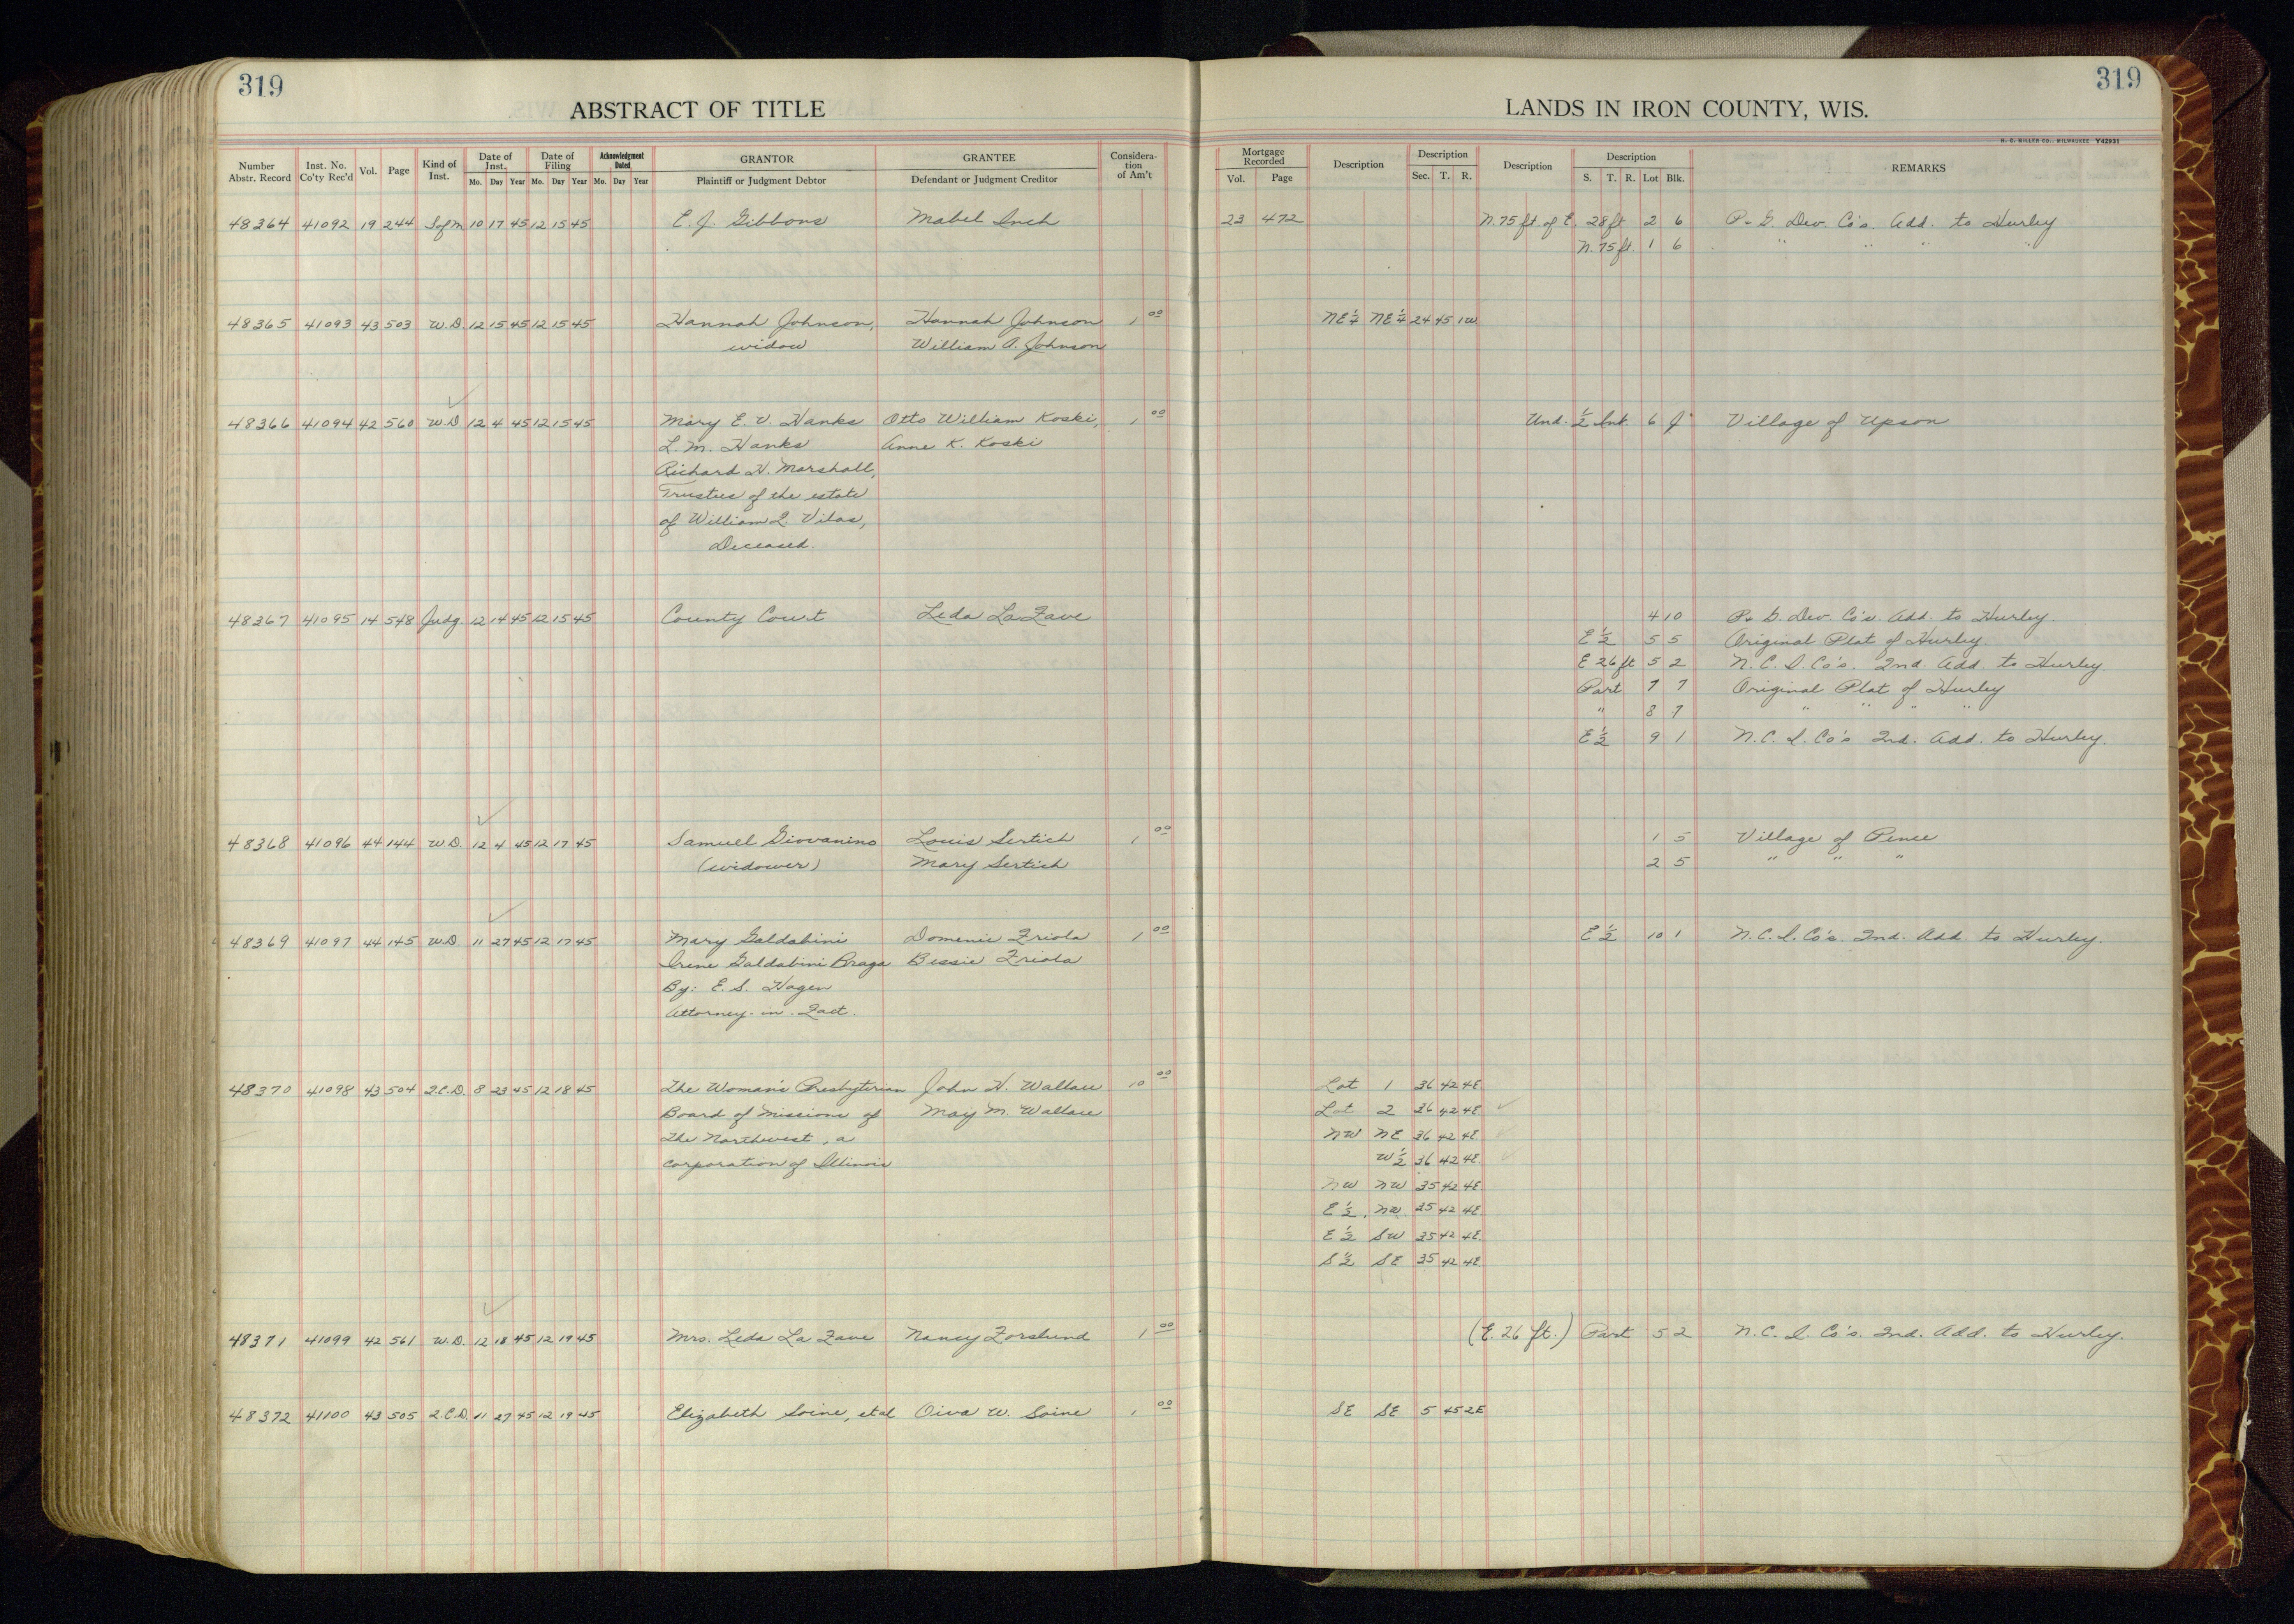 319
ABSTRACT OF TITLE
LANDS IN IRON COUNTY, WIS.
319
H. C. MILLER CO., MILWAUKEE Y42931
Number Abstr. Record | Inst. No. Co'ty Rec'd | Vol. | Page | Kind of Inst. | Date of Inst. Mo. Day Year | Date of Filing Mo. Day Year | Acknowledgment Dated Mo. Day Year | GRANTOR Plaintiff or Judgment Debtor | GRANTEE Defendant or Judgment Creditor | Consideration of Am't | Mortgage Recorded Vol. Page | Description | Description Sec. T. R. | Description | Description S. T. R. Lot Blk. | REMARKS
48364 41092 19 244 S of M 10 17 45 12 15 45 E. J. Gibbons Mabel Inch 23 472 N. 75 ft. of E. 28 ft 2 6 P. & G. Dev. Co's. Add. to Hurley
N. 75 ft 1 6 " " " "
48365 41093 43 503 W.D. 12 15 45 12 15 45 Hannah Johnson, Hannah Johnson 1 00 NE 1/4 NE 1/4 24 45 1W
widow William A. Johnson
48366 41094 42 560 W.D 12 4 45 12 15 45 Mary E. V. Hanks Otto William Koski, 1 00 Und. 1/2 Int. 6 J Village of Upson
L. M. Hanks Anne K. Koski
Richard H. Marshall,
Trustee of the estate
of William F. Vilas,
Deceased.
48367 41095 14 548 Judg. 12 14 45 12 15 45 County Court Leda LaFave 4 10 P. & G. Dev. Co's. Add. to Hurley.
E 1/2 5 5 Original Plat of Hurley.
E 26 ft 5 2 N. C. I. Co's. 2nd. Add. to Hurley.
Part 7 7 Original Plat of Hurley
" 8 7 " " " "
E 1/2 9 1 N. C. I. Co's 2nd. Add. to Hurley.
48368 41096 44 144 W.D. 12 4 45 12 17 45 Samuel Giovanino Louis Sertich 1 00 1 5 Village of Pence
(widower) Mary Sertich 2 5 " " "
48369 41097 44 145 W.D. 11 27 45 12 17 45 Mary Galdabini Domenic Friola 1 00 E 1/2 10 1 N. C. I. Co's. 2nd. Add. to Hurley.
Irene Galdabini Braga Bessie Friola
By: E. S. Hagen
Attorney-in-Fact.
48370 41098 43 504 Q.C.D. 8 23 45 12 18 45 The Woman's Presbyterian John H. Wallace 10 00 Lot 1 36 42 4E
Board of Missions of May M. Wallace Lot 2 36 42 4E.
The Northwest, a NW NE 36 42 4E.
corporation of Illinois W 1/2 36 42 4E.
NW NW 35 42 4E
E 1/2 NW 35 42 4E
E 1/2 SW 35 42 4E.
S 1/2 SE 35 42 4E.
48371 41099 42 561 W.D. 12 18 45 12 19 45 Mrs. Leda La Fave Nancy Forslund 1 00 (E. 26 ft.) Part 5 2 N. C. I. Co's. 2nd. Add. to Hurley.
48372 41100 43 505 Q.C.D. 11 27 45 12 19 45 Elizabeth Soine, et al Oiva W. Soine 1 00 SE SE 5 45 2E